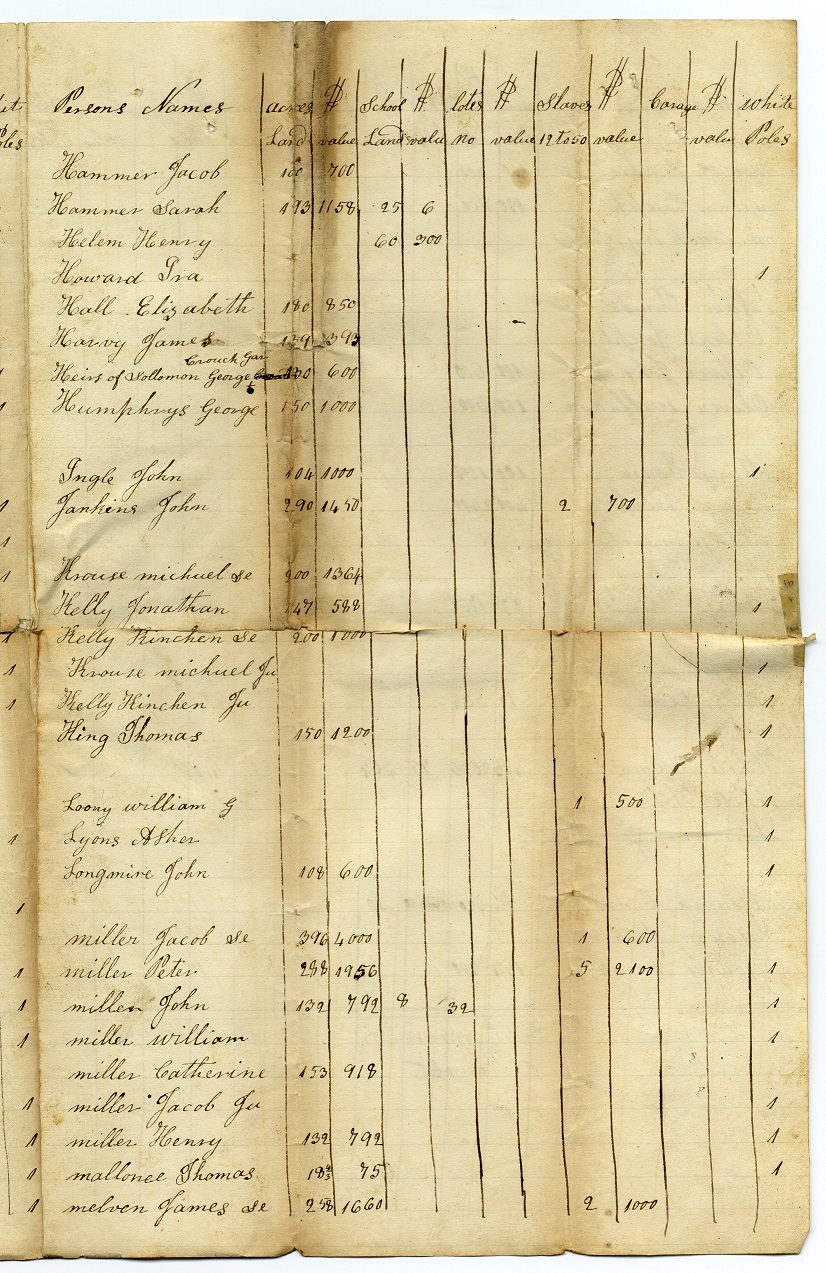 Persons Names acres $ School $ lotes $ Slaves $ Carage $ white
Land value Land valu no value 12 to 50 value valu Poles
Hammer Jacob 100 700
Hammer Sarah 193 1158 25 6
Helem Henry 60 300
Howard Ira 1
Hall Elizabeth 180 850
Harvy James 139 393
Crouch Gar
Heirs of Sollomon George 130 600
Humphrys George 150 1000
Ingle John 104 1000 1
Jankins John 290 1450 2 700
Krouse michael Se 200 1364
Kelly Jonathan 147 588 1
Kelly Kinchen Se 200 1000
Krouse michael Ju 1
Kelly Kinchen Ju 1
King Thomas 150 1200 1
Loony william G 1 500 1
Lyons Asher 1
Longmire John 108 600 1
miller Jacob Se 396 4000 1 600
miller Peter 288 1956 5 2100 1
miller John 132 792 8 32 1
miller william 1
miller Catherine 153 918
miller Jacob Ju 1
miller Henry 132 792 1
mallonee Thomas 75 1
melven James Se 258 1660 2 1000